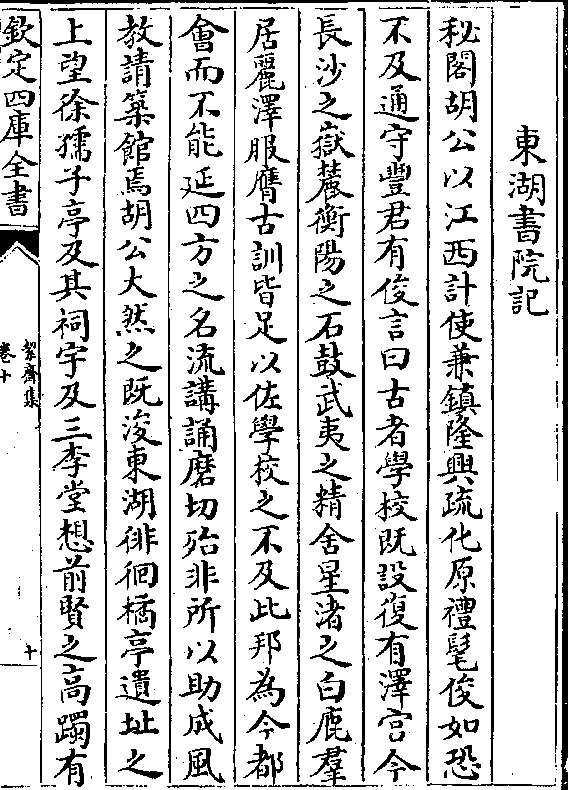 東湖書院記
秘閣胡公以江西計使兼鎮隆興疏化原禮髦俊如恐
不及通守豐君有俊言曰古者學校既設復有澤宫今
長沙之嶽麓衡陽之石鼓武夷之精舍星渚之白鹿羣
居麗澤服膺古訓皆足以佐學校之不及此邦為今都
會而不能延四方之名流講誦磨切殆非所以助成風
教請築館焉胡公大然之既浚東湖徘徊橘亭遺址之
上望徐孺子亭及其祠宇及三李堂想前賢之高躅有
欽定四庫全書
絜齋集
卷十
十